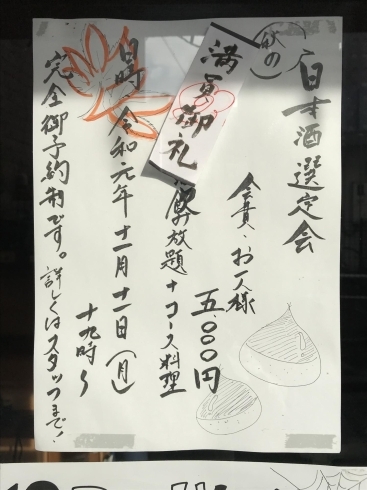 (秋の)
日本酒選定会
会費、お一人様
五.000円
飲み放題+コース料理
満員御礼
日時、令和元年十一月十一日(月)
十九時〜
完全御予約制です。詳しくはスタッフまで!